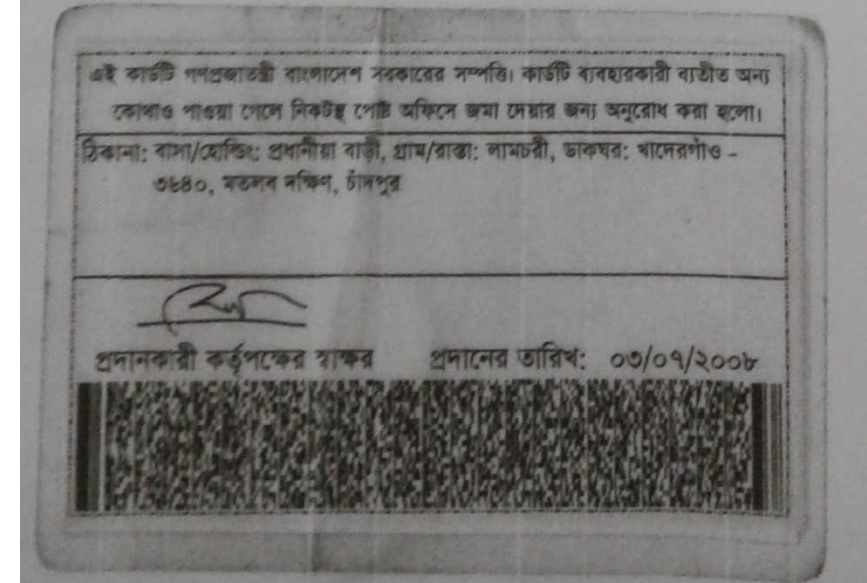 এই কার্ডটি গণপ্রজাতন্ত্রী বাংলাদেশ সরকারের সম্পত্তি। কার্ডটি ব্যবহারকারী ব্যতীত অন্য
কোথাও পাওয়া গেলে নিকটস্থ পোষ্ট অফিসে জমা দেয়ার জন্য অনুরোধ করা হলো।
ঠিকানা: বাসা/হোল্ডিং: প্রধানীয়া বাড়ী, গ্রাম/রাস্তা: লামচরী, ডাকঘর: খাদেরগাঁও -
৩৬৪০, মতলব দক্ষিণ, চাঁদপুর
প্রদানকারী কর্তৃপক্ষের স্বাক্ষর প্রদানের তারিখ: ০৩/০৭/২০০৮